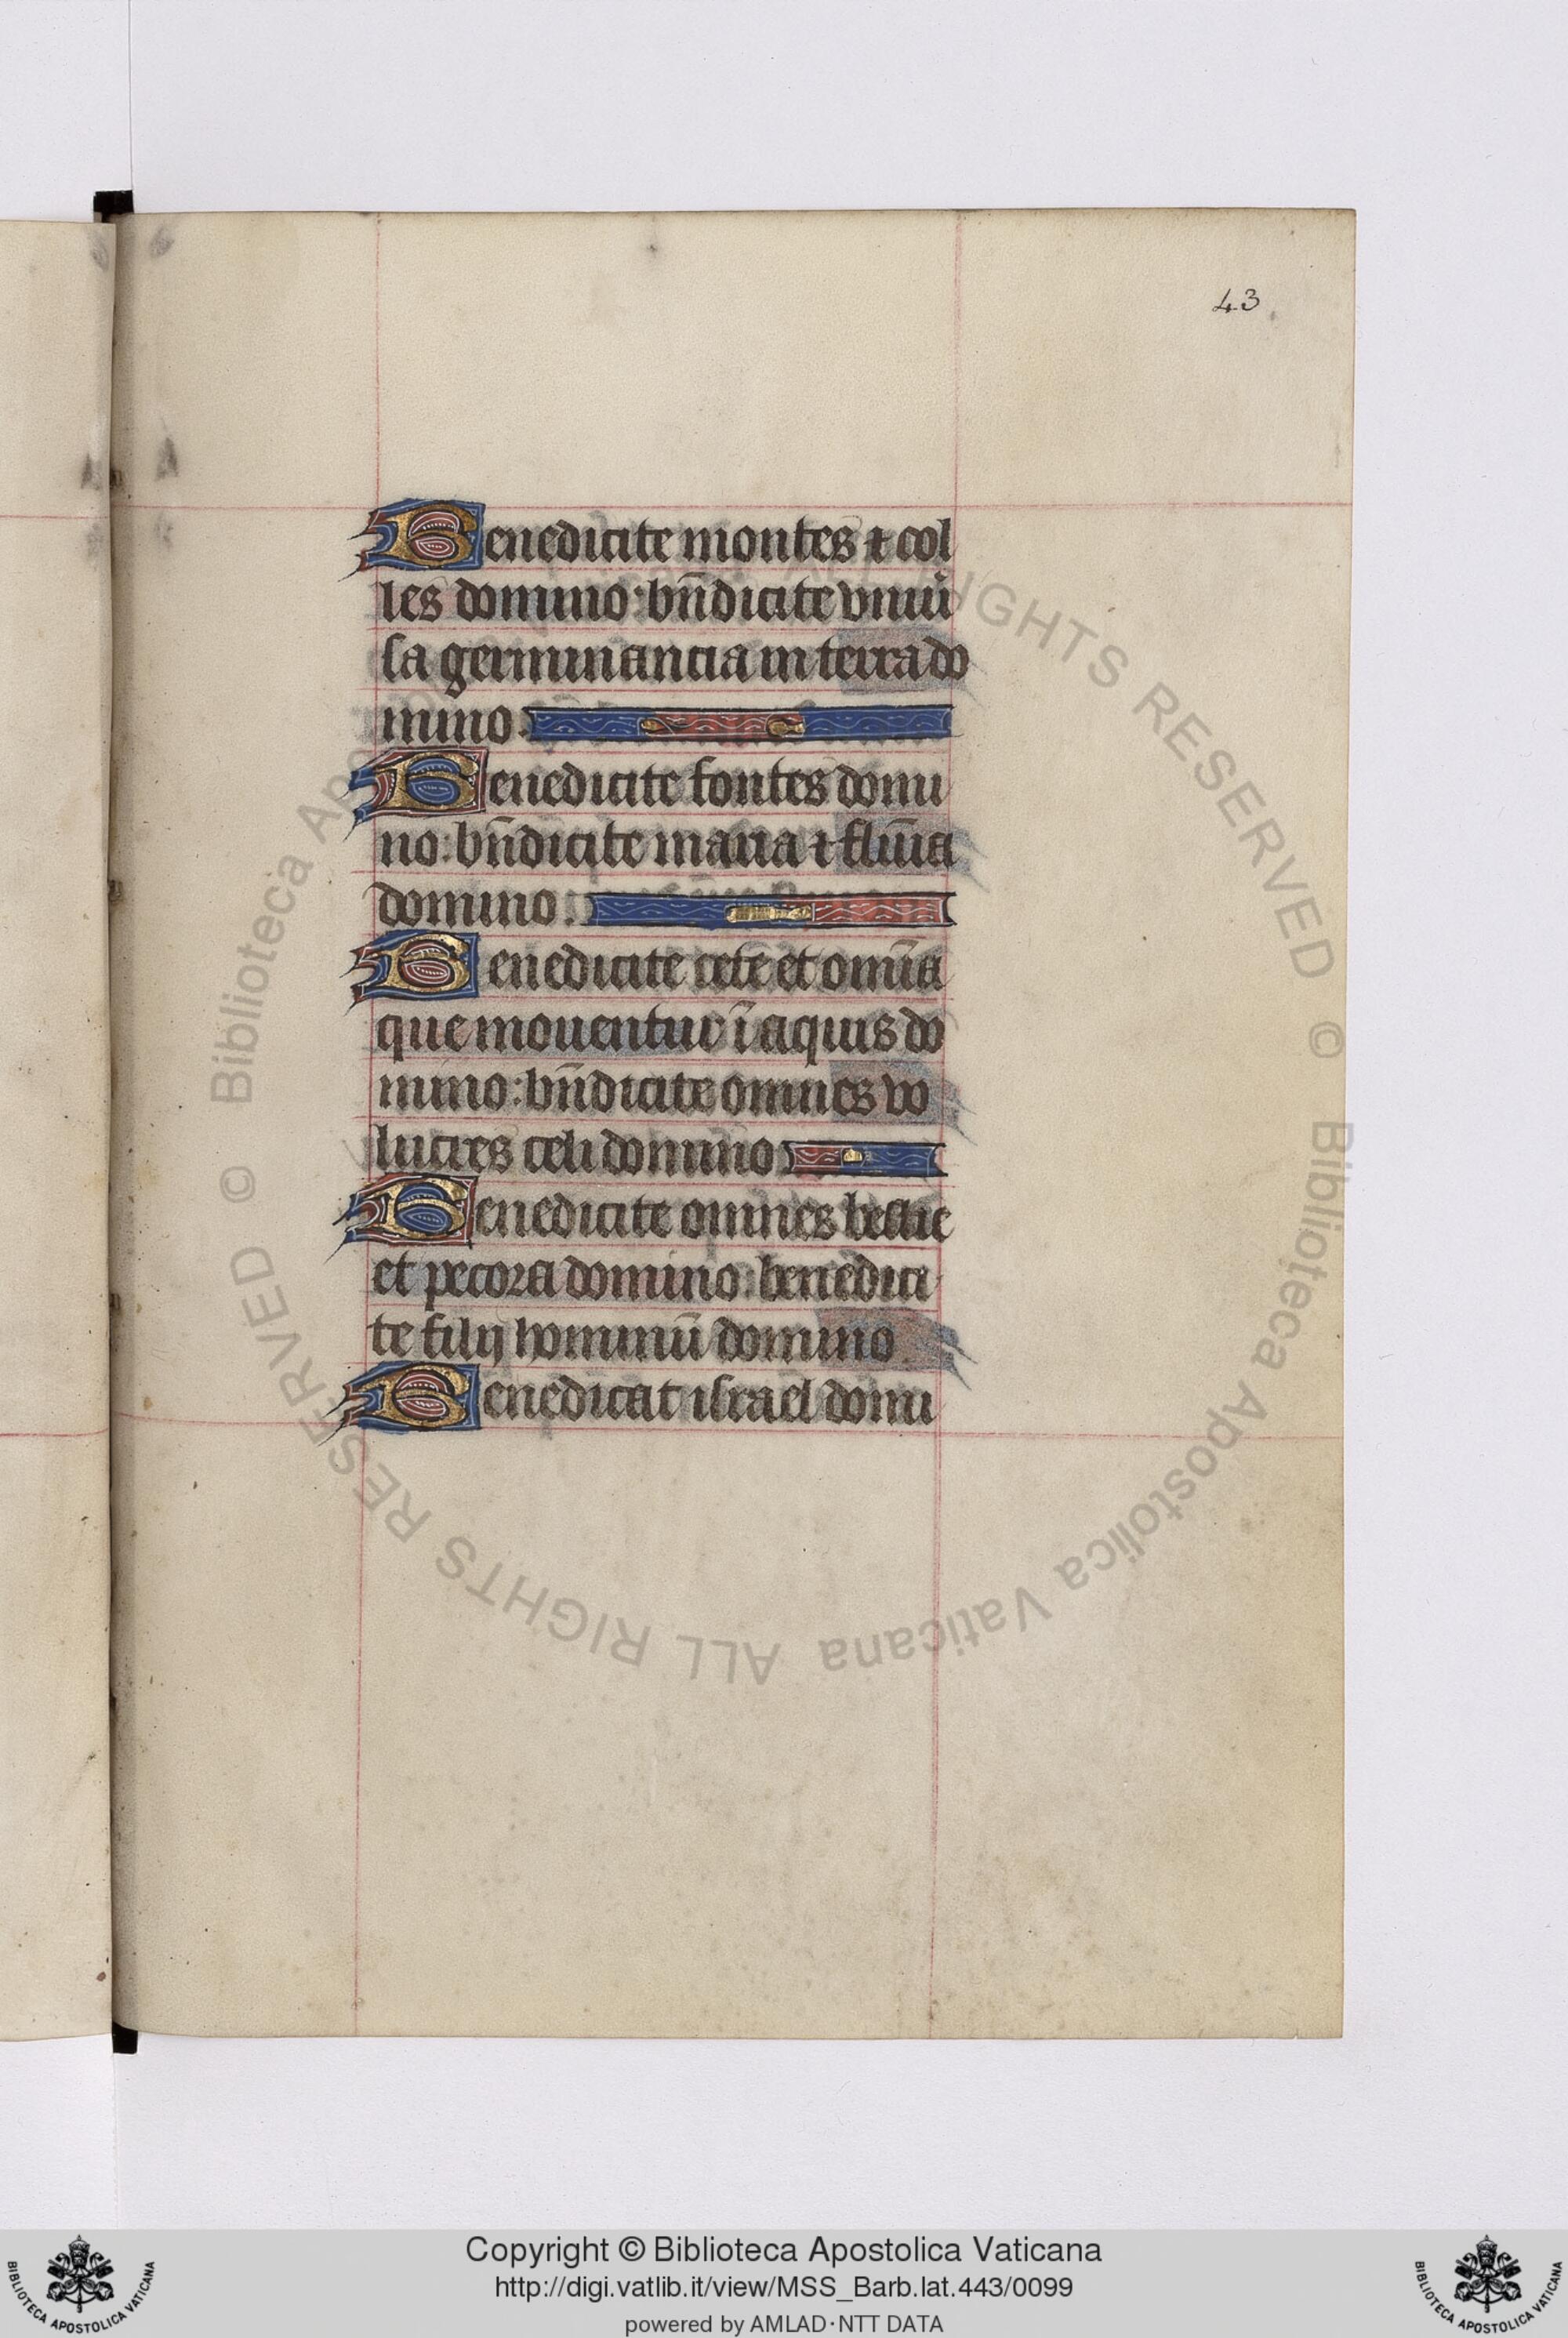 43
Benedicite montes ⁊ col
les domino: bn̄dicite vniu᷑
sa germinancia in terra do
mino.
Benedicite fontes domi
no: bn̄dicite maria ⁊ flūia
domino.
Benedicite cete et om̄ia
que mouentur ī aquis do
mino: bn̄dicite omnes vo
lucres celi domino
Benedicite omnes bestie
et pecora domino: benedici
te filij hominū domino
Benedicat israel domi
© Biblioteca Apostolica Vaticana ALL RIGHTS RESERVED
© Biblioteca Apostolica Vaticana ALL RIGHTS RESERVED
Copyright © Biblioteca Apostolica Vaticana
http://digi.vatlib.it/view/MSS_Barb.lat.443/0099
powered by AMLAD·NTT DATA
BIBLIOTECA APOSTOLICA VATICANA
BIBLIOTECA APOSTOLICA VATICANA